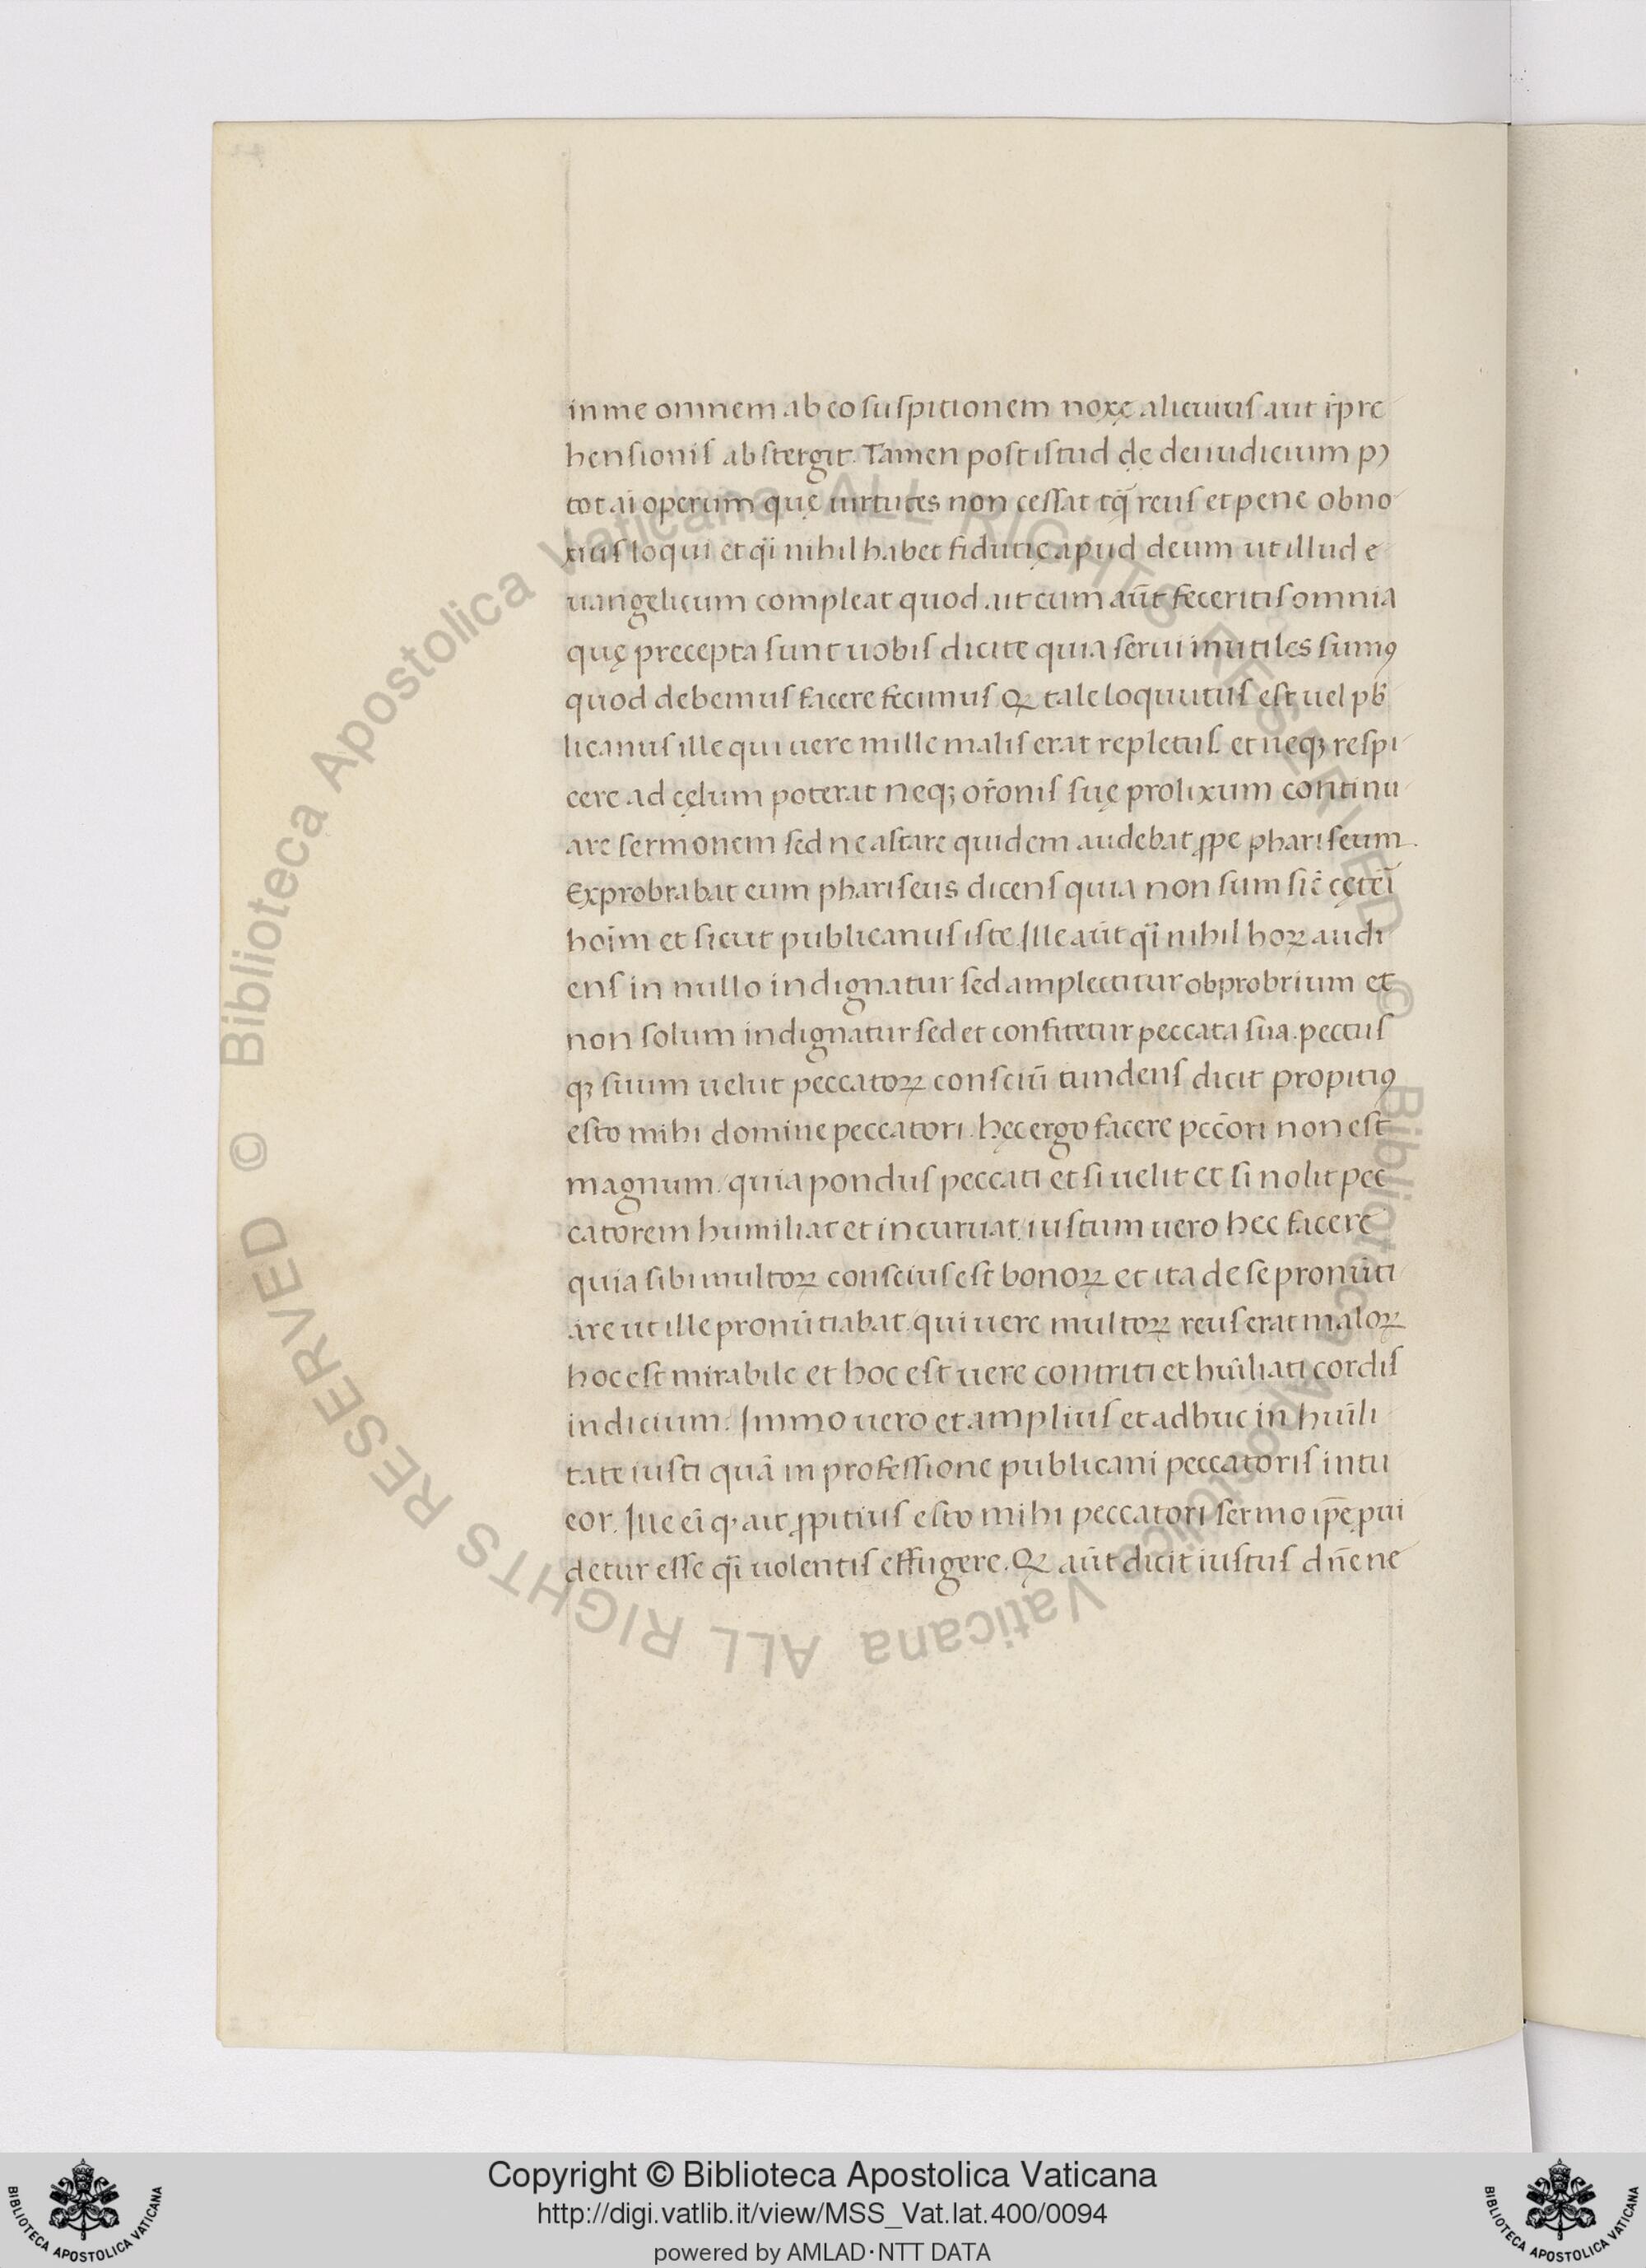 in me omnem ab eo suspitionem noxę alicuius aut rẽpre
hensionis abstergit. Tamen post istud dẹ dei iudicium pꝰ
tot ai operum quę uirtutes non cessat tq̃ reus et pene obno
xius loqui et q̃i nihil habet fidutię apud deum ut illud e
uangelicum compleat quod ait cum aũt feceritis omnia
quę precepta sunt uobis dicite quia serui inutiles sumꝰ
quod debemus facere fecimus Qꝫ tale loquutus est uel pb̃
licanus ille qui uere mille malis erat repletus. et neqꝫ respi
cere ad cęlum poterat neqꝫ or̃onis suę prolixum continu
are sermonem sed ne astare quidem audebat ꝓpe phariseum.
Exprobrabat eum phariseus dicens quia non sum sic̃ cętei
hoĩm et sicut publicanus iste. Ille aũt q̃i nihil hoꝝ audi
ens in nullo indignatur sed amplectitur obprobrium et
non solum indignatur sed et confitetur peccata sua. pectus
qꝫ suum uelut peccatoꝝ consciũ tundens dicit propitiꝰ
esto mihi domine peccatori. hęc ergo facere pcc̃ori non est
magnum. quia pondus peccati et si uelit et si nolit pec
catorem humiliat et incuruat. iustum uero hec facere
quia sibi multoꝝ conscius est bonoꝝ et ita de se pronũti
are ut ille pronũtiabat. qui uere multoꝝ reus erat maloꝝ
hoc est mirabile et hoc est uere contriti et hũiliati cordis
indicium. Immo uero et amplius et adhuc in hũili
tate iusti quã in professione publicani peccatoris intu
eor. Illic eĩ q· ait ꝓpitius esto mihi peccatori sermo ip̃e pui
detur esse q̃i uolentis effugere. Qꝫ aũt dicit iustus dñe ne
© Biblioteca Apostolica Vaticana ALL RIGHTS RESERVED © Biblioteca Apostolica Vaticana ALL RIGHTS RESERVED
Copyright © Biblioteca Apostolica Vaticana
http://digi.vatlib.it/view/MSS_Vat.lat.400/0094
powered by AMLAD·NTT DATA
BIBLIOTECA APOSTOLICA VATICANA
BIBLIOTECA APOSTOLICA VATICANA